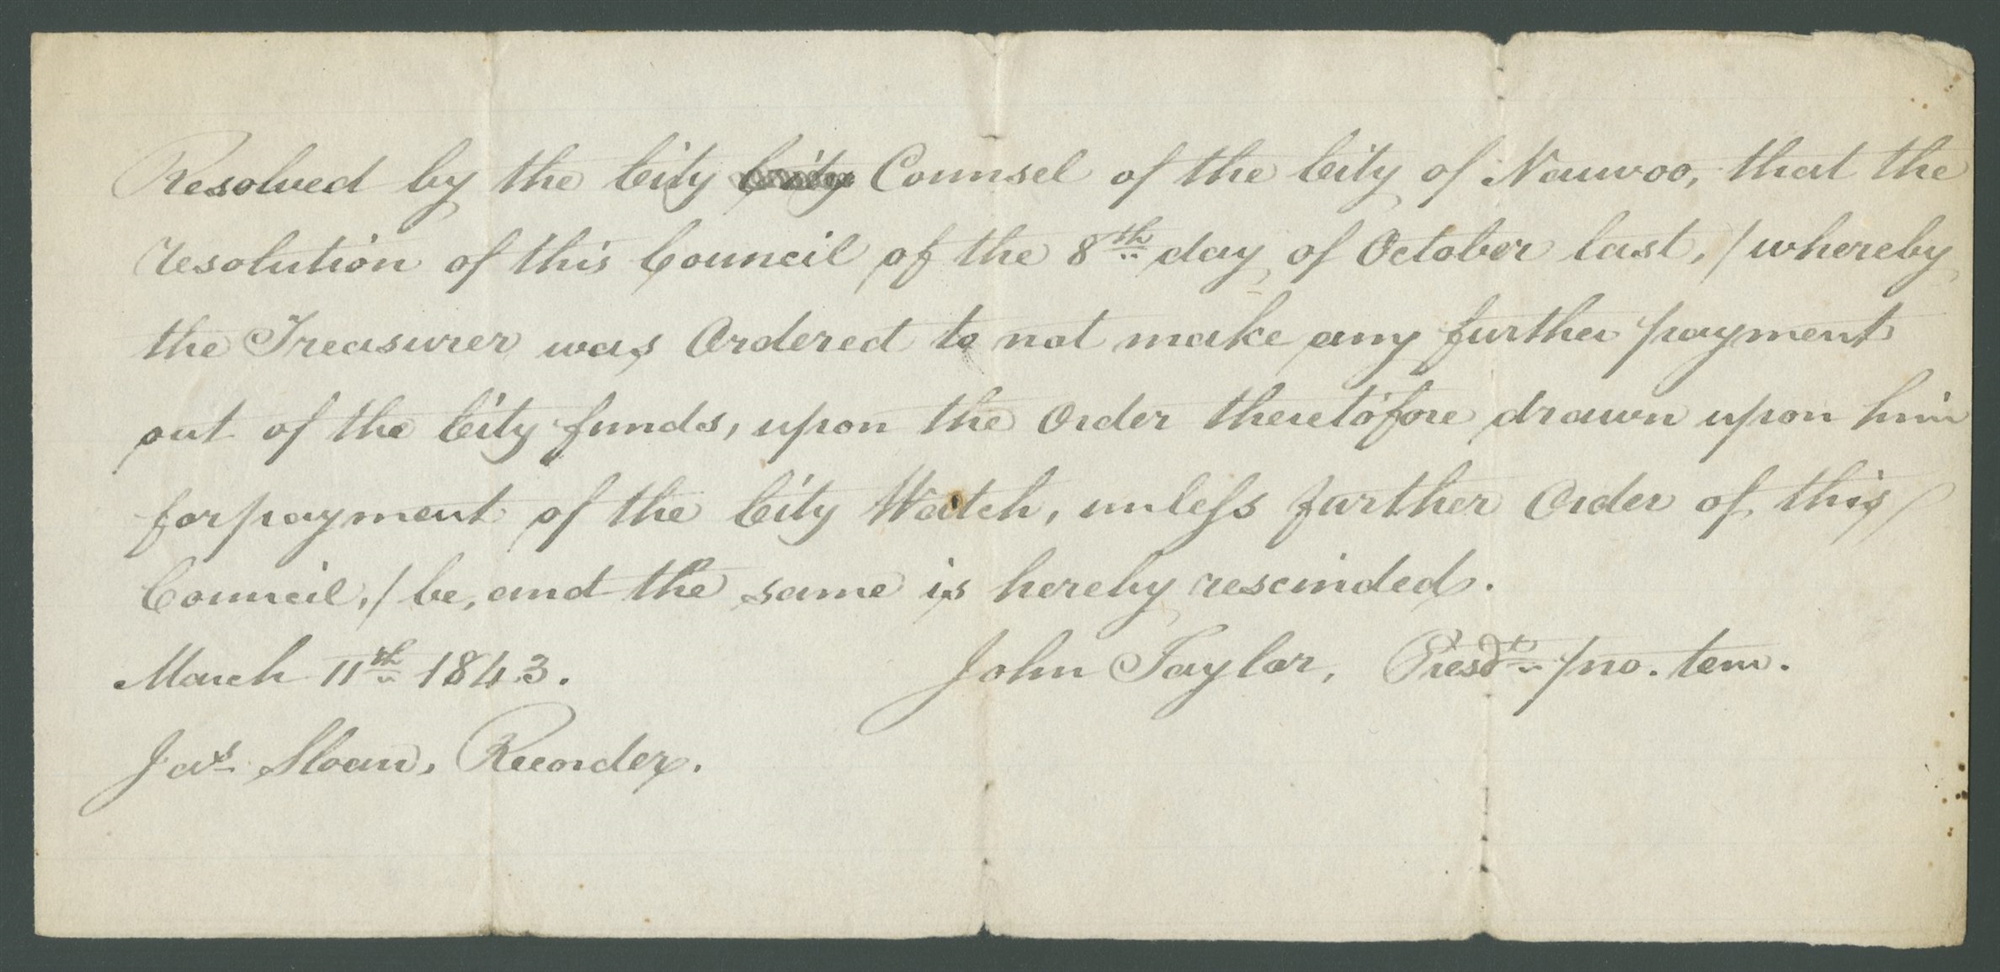 Resolved by the City City Counsel of the City of Nauvoo, that the
resolution of this Council of the 8th day of October last, / whereby
the Treasurer was Ordered to not make any further payment
out of the City funds, upon the Order theretofore drawn upon him
for payment of the City Watch, unless further Order of this
Council, / be, and the same is hereby rescinded.
March 11th 1843. John Taylor, Presdt pro. tem.
Jas Sloan, Recorder.